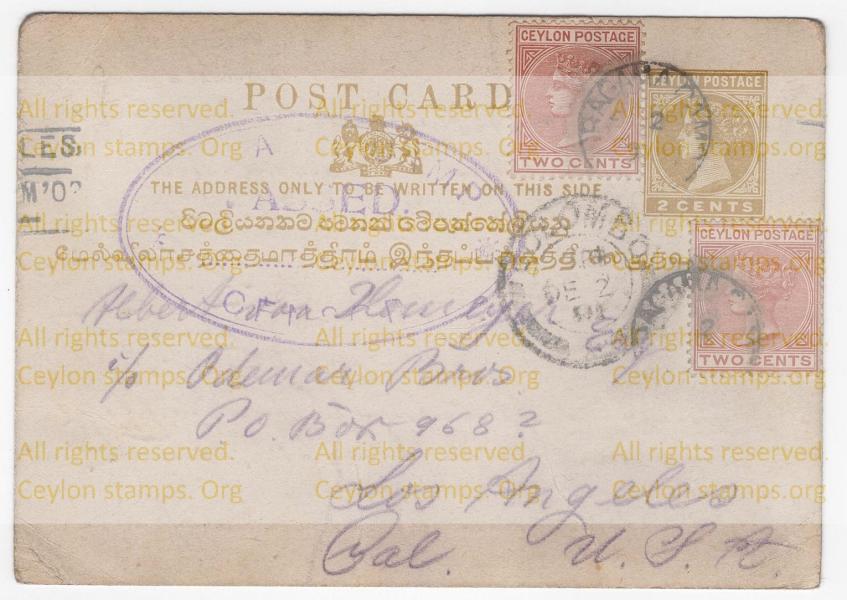 CEYLON POSTAGE
TWO CENTS
CEYLON POSTAGE
2 CENTS
POST CARD
All rights reserved. All rights reserved. All rights reserved.
Ceylon stamps. Org Ceylon stamps. Org Ceylon stamps. Org
LES
A
PASSED.
THE ADDRESS ONLY TO BE WRITTEN ON THIS SIDE
CEYLON POSTAGE
TWO CENTS
COLOMBO
DE 2
RAGAMA CAMP
2
RAGAMA CAMP
2
මේලියනකම පමනක් ලිවයුත්තේලියන
மேல்விலாசத்தைமாத்திரம் இந்தப்பக்கத்தில்எழுதல்வேண்டும்
All rights reserved. All rights reserved. All rights reserved.
Ceylon stamps. Org Ceylon stamps. Org Ceylon stamps. Org
Albert von
All rights reserved. All rights reserved. All rights reserved.
c/o Bros.
Ceylon stamps. Org Ceylon stamps. Org Ceylon stamps. Org
P.O. Box 968
All rights reserved. All rights reserved. All rights reserved.
Los Angeles
Ceylon stamps. Org Ceylon stamps. Org Ceylon stamps. Org
Cal. U. S. A.